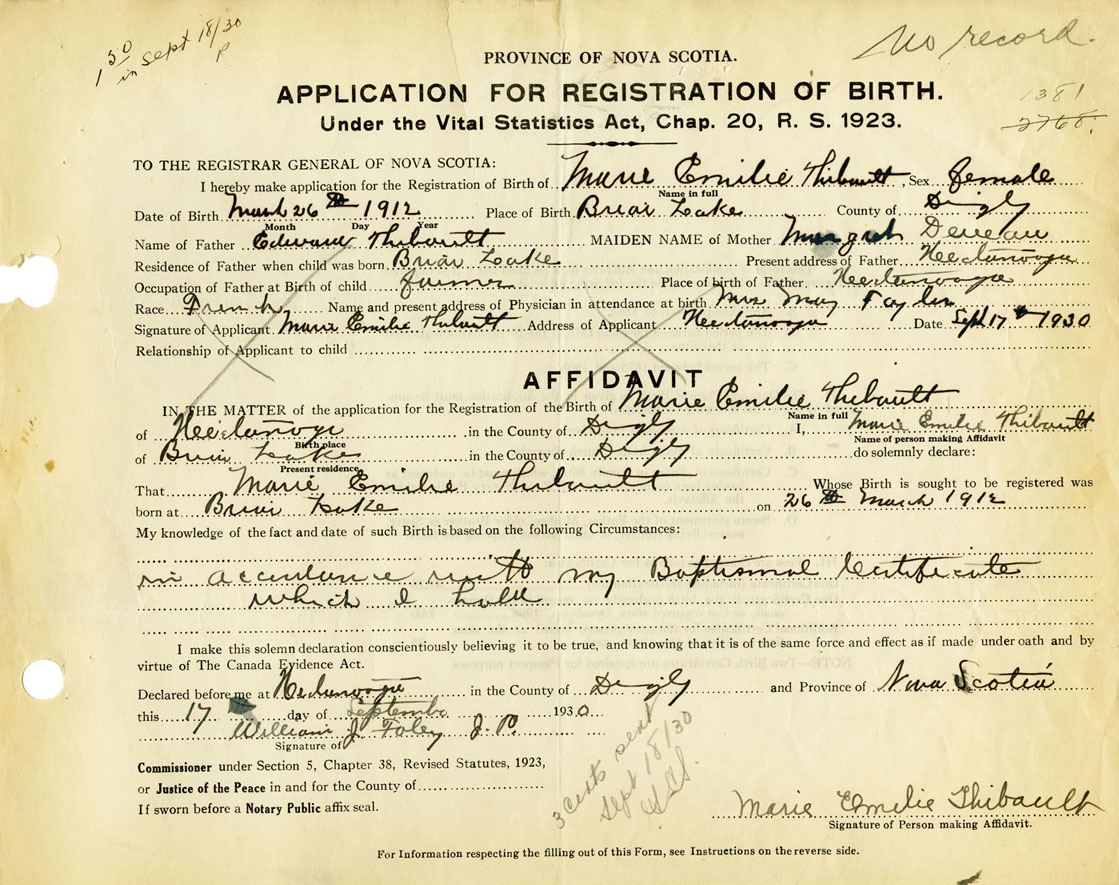 1 50 in Sept 18/30
No record.
PROVINCE OF NOVA SCOTIA.
APPLICATION FOR REGISTRATION OF BIRTH.
1381
2768.
Under the Vital Statistics Act, Chap. 20, R. S. 1923.
TO THE REGISTRAR GENERAL OF NOVA SCOTIA:
I hereby make application for the Registration of Birth of Marie Emilie Thibault, Sex female
Name in full
Date of Birth March 26th 1912 Place of Birth Briar Lake County of Digby
Month Day Year
Name of Father Edward Thibault MAIDEN NAME of Mother Margret Deveau
Residence of Father when child was born Briar Lake Present address of Father Hectanooga
Occupation of Father at Birth of child farmer Place of birth of Father Hectanooga
Race French Name and present address of Physician in attendance at birth Mrs May Taylor
Signature of Applicant Marie Emilie Thibault Address of Applicant Hectanooga Date Sept 17th 1930
Relationship of Applicant to child
AFFIDAVIT
IN THE MATTER of the application for the Registration of the Birth of Marie Emilie Thibault
Name in full
of Hectanooga in the County of Digby I, Marie Emilie Thibault
Birth place Name of person making Affidavit
of Briar Lake in the County of Digby do solemnly declare:
Present residence
That Marie Emilie Thibault Whose Birth is sought to be registered was
born at Briar Lake on 26th March 1912
My knowledge of the fact and date of such Birth is based on the following Circumstances:
in accordance with my Baptismal Certificate
which I hold
I make this solemn declaration conscientiously believing it to be true, and knowing that it is of the same force and effect as if made under oath and by
virtue of The Canada Evidence Act.
Declared before me at Hectanooga in the County of Digby and Province of Nova Scotia
this 17 day of September 1930
William J Foley J. P.
Signature of
Commissioner under Section 5, Chapter 38, Revised Statutes, 1923,
or Justice of the Peace in and for the County of
If sworn before a Notary Public affix seal.
3 Certs sent
Sept 18/30
Marie Emilie Thibault
Signature of Person making Affidavit.
For Information respecting the filling out of this Form, see Instructions on the reverse side.